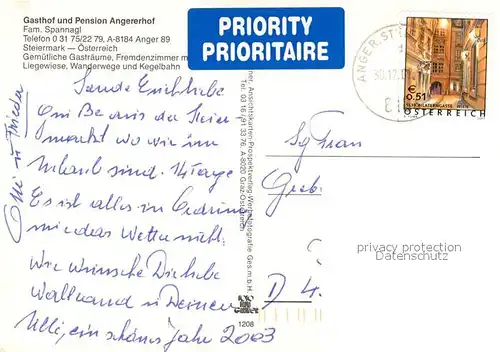 Gasthof und Pension Angererhof
Fam. Spannagl
Telefon 0 31 75/22 79, A-8184 Anger 89
Steiermark — Österreich
Gemütliche Gasträume, Fremdenzimmer m
Liegewiese, Wanderwege und Kegelbahn
PRIORITY
PRIORITAIRE
ANGER-ST
30.12.0
€ 0,51
WIEN
ÖSTERREICH
Sende Euch liebe
aus der Steier-
markt wo wir im
Urlaub sind. 14 Tage
Es ist alles in Ordnung
nur das Wetter nicht.
Wir wünsche Dir liebe
Waltraud u Deinen
Ulli, ein schönes Jahr 2003
Otti u Frieda
ner, Ansichtskarten-Prospektverlag-Werbefotografie Ges.m.b.H.
A-8020 Graz-Österreich
1208
Sg Frau
Grab.
D 4.
privacy protection
Datenschutz